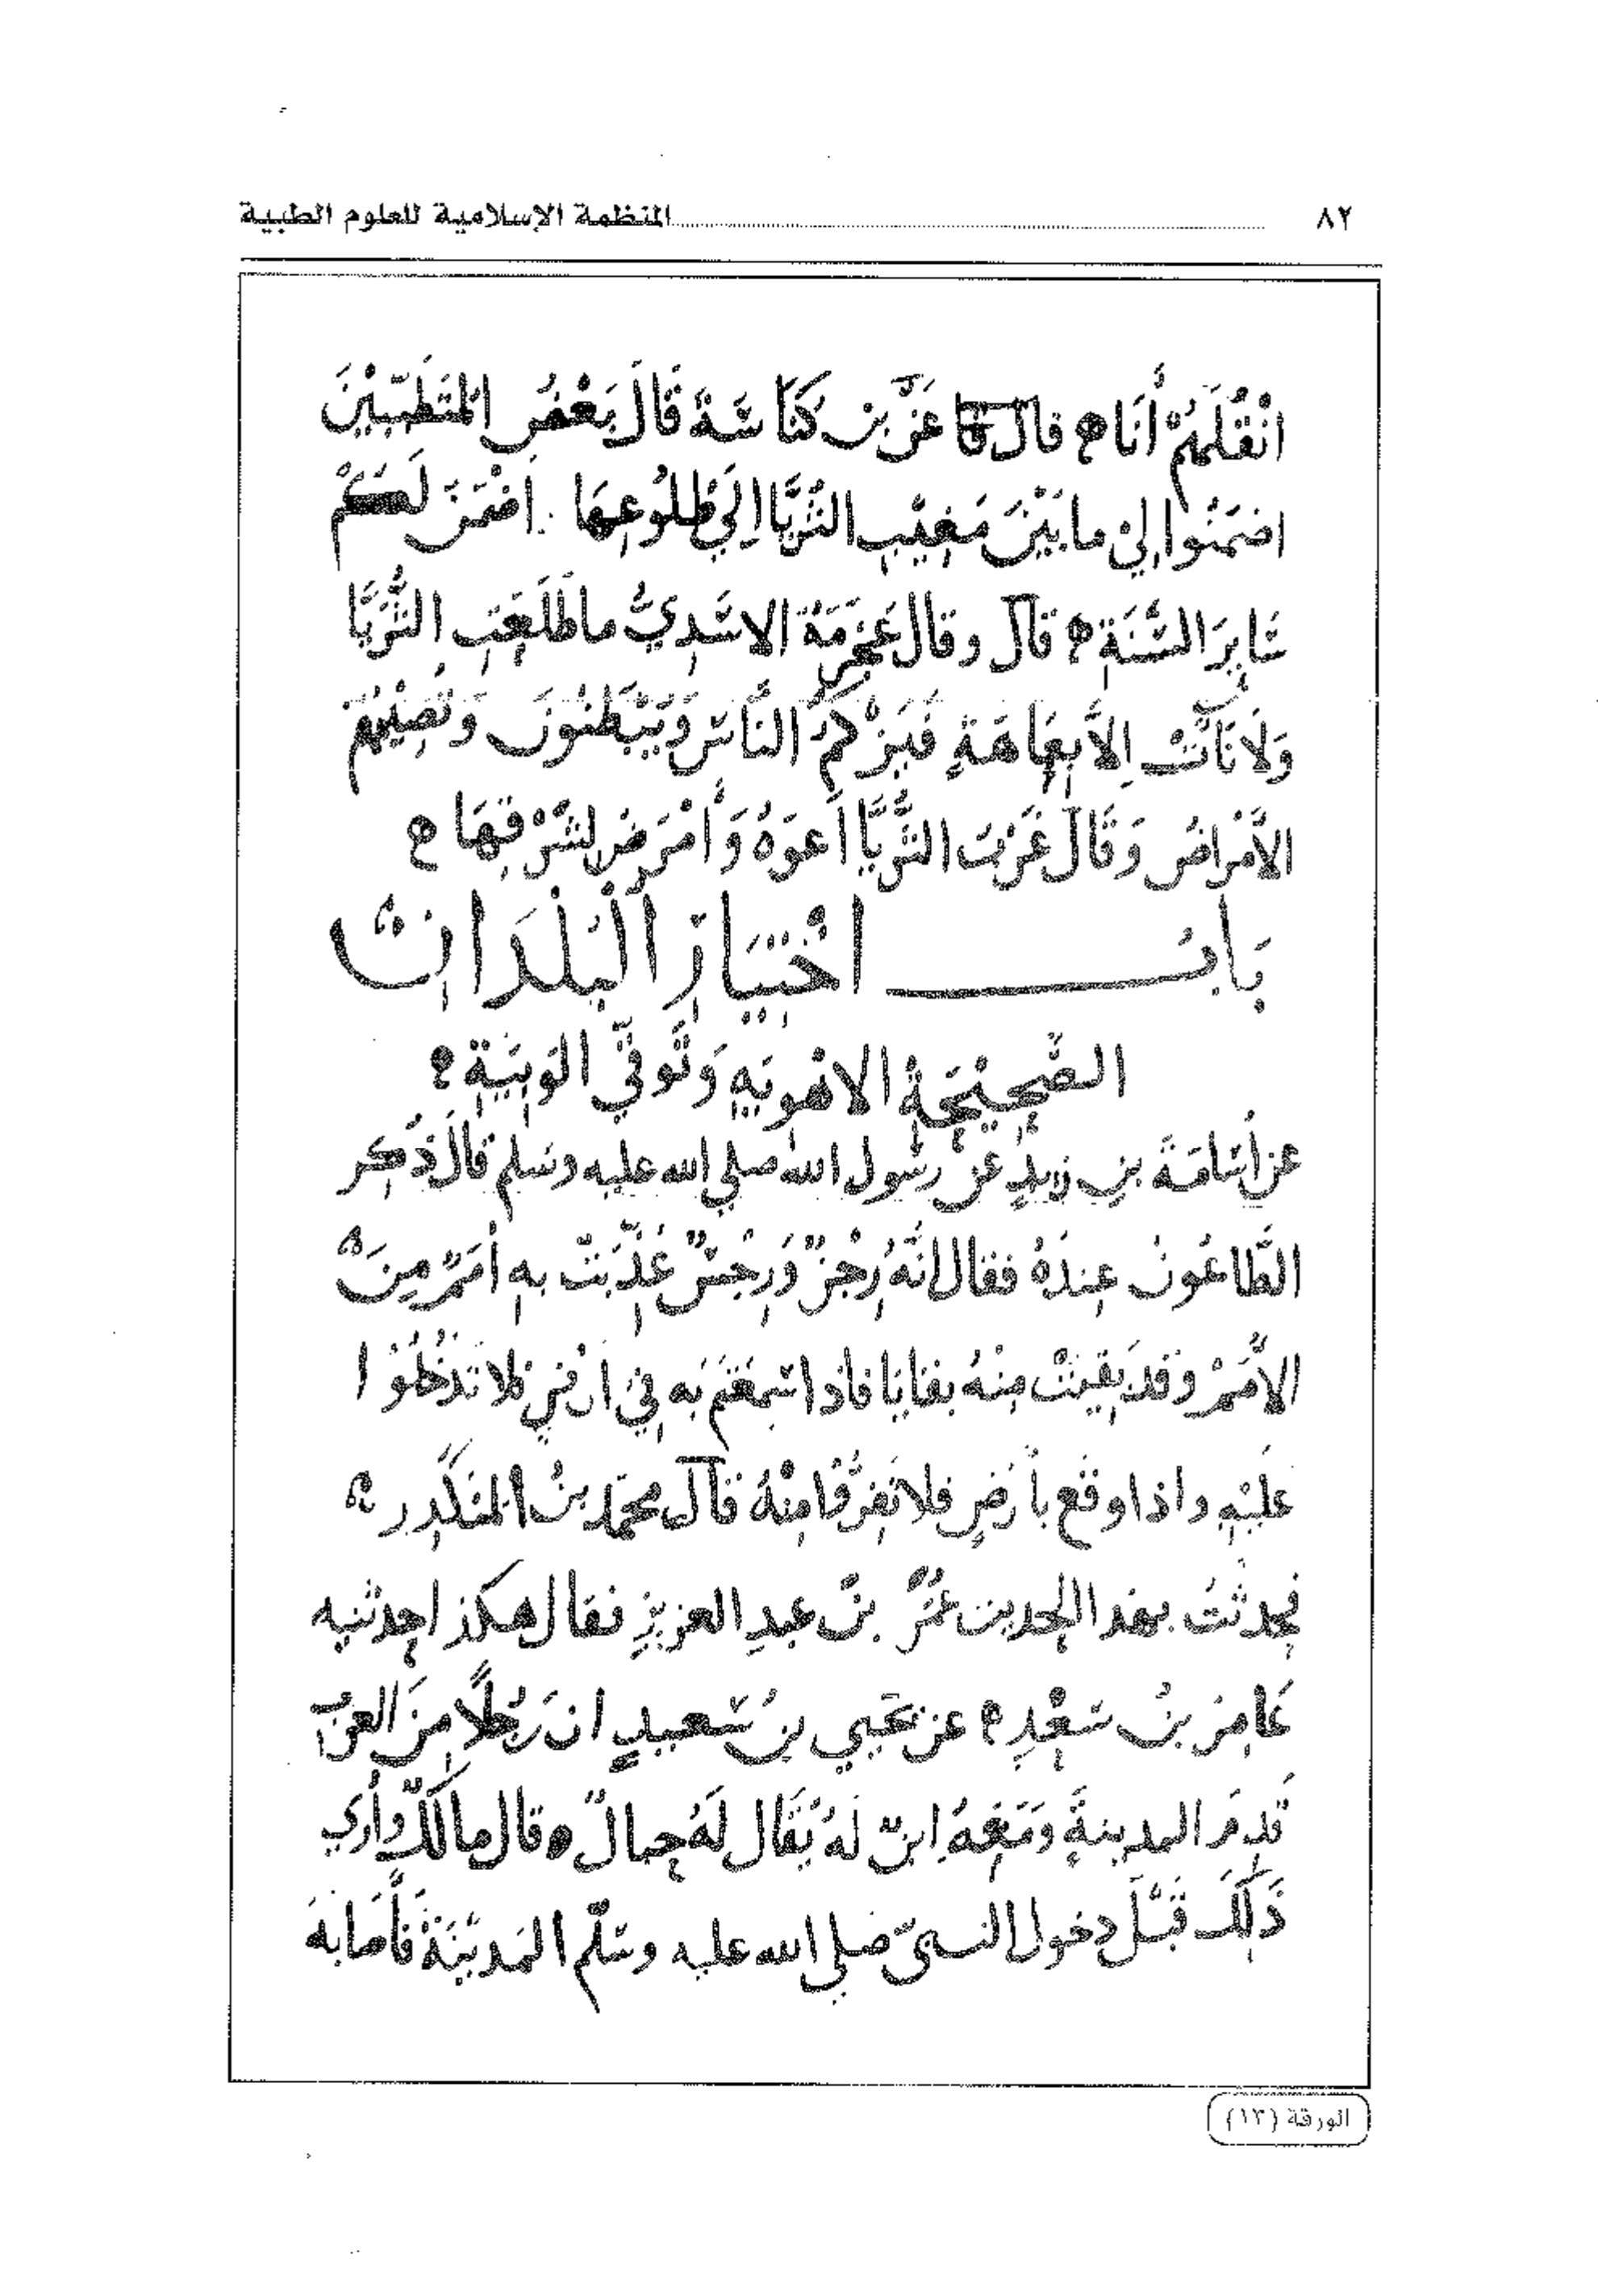 ٨٢ المنظمة الإسلامية للعلوم الطبية
أَنَا قال عَن بن كنَاسَة قَالَ بَعْضُ المُتَطَبِّبِيْنَ
اضمَنُوا لِي ما بَيْنَ مَغِيْبِ الثُّرَيَّا إِلَي طُلُوعِهَا أضْمَنْ لَكُمْ
سَايِرَ السَّنَةِ قال وقال الاسَدِيُّ ما طَلَعَتِ الثُّرَيَّا
وَلَا نَأَتْ إِلَّا بِعَاهَةٍ فَيَزْكُمُ النَّاسُ وَيَبْطَنُونَ وَتُصِيْبُهُم
الأَمْرَاضُ وَقَالَ غَرْبُ الثُّرَيَّا أَعوَهُ وَأَمْرَضُ مِن شَرْقِهَا
بَابُ اخْتِيَارِ الْبُلْدَانِ
الصَّحِيْحَةِ الاهْوِيَةِ وَتَوَقِّي الوَبِيَةِ
عن أُسَامَةَ بنِ زيدٍ عن رسُول الله صلي الله عليه وسَلم قالَ ذُكِر
الطَّاعُونُ عِندَهُ فقال إنَّهُ رِجْزٌ وَرِجْسٌ عُذِّبَتْ بهِ أُمَمٌ مِنَ
الأُمَمْ وَقد بَقِيَتْ مِنهُ بقَايَا فاذا سَمِعْتُم بِه فِي ارْضٍ فلا تَدْخُلُوْا
عليْهِ واذا وقَع بأرْضٍ فلا تَفِرُّوا مِنْهُ قال محمَّد بنُ المُنكَدِرِ
فحدثتُ بهذا الحديث عُمَرَ بن عبدِ العزيزِ فقال هكذا حدثنيه
عَامِرُ بنُ سَعْدٍ عن يَحيي بنُ سَعيدٍ ان رَجُلًا مِنَ العَرَبِ
قدِمَ المدينةَ وَمَعَهُ ابنٌ لهُ يُقَال لَهُ حِبالٌ قال مالكٌ وأري
ذَلِكَ قَبْلَ دخول النبيّ صلي الله عليه وسَلّم المَدِيْنَةَ فَأَصَابهُ
الورقة (١٣)